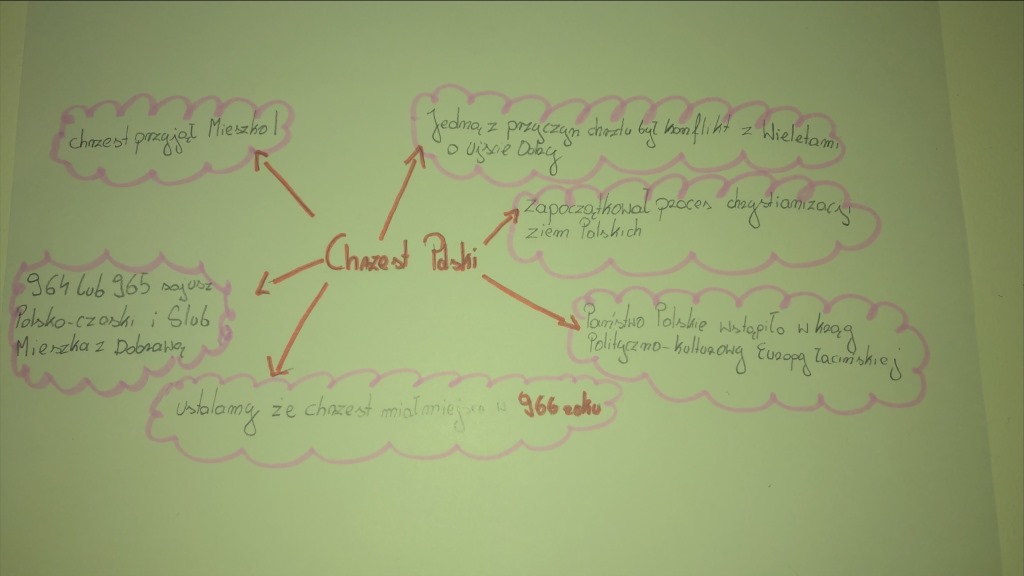 chrzest przyjął Mieszko I
Jedną z przyczyn chrztu był konflikt z Wieletami
o ujście Odry
Zapoczątkował proces chrystianizacji
ziem Polskich
Chrzest Polski
964 lub 965 sojusz
Polsko-czeski i Ślub
Mieszka z Dobrawą
Państwo Polskie wstąpiło w krąg
Polityczno-kulturowy Europy Łacińskiej
ustalamy że chrzest miał miejsce w 966 roku